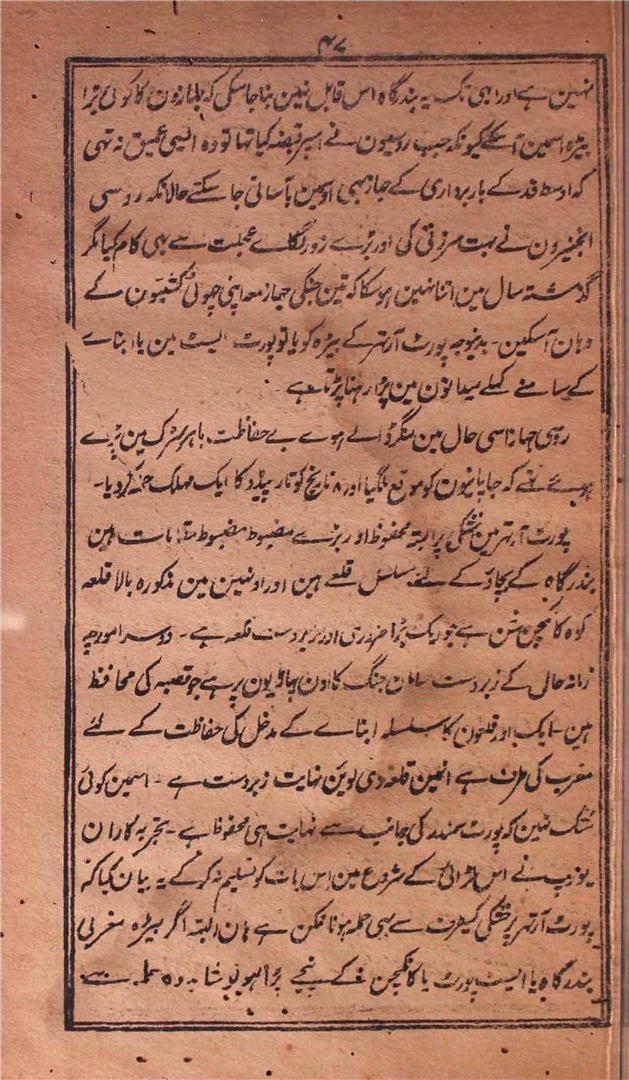 ۴۷
نہین ہے اور ابہی تک یہ بندرگاہ اس قابل نہین بنا جاسکی کہ جہازون کا کوئی بڑا
بیڑہ اسمین آسکے کیونکہ جب روسیون نے اسپر قبضہ کیا تہا تو وہ ایسی عمیق نہ تہی
کہ اوسط قد کے باربرداری کے جہاز بہی اوسمین بآسانی جاسکتے حالانکہ روسی
انجنیرون نے بہت سرزنی کی اور بڑے زور لگاے عجلت سے بہی کام کیا مگر
گذشتہ سال مین اتنا نہین ہوسکا کہ تین جنگی جہاز معہ اپنی چہوٹی کشتیون کے
وہان آسکین۔ بدینوجہ پورٹ آرتہر کے بیڑہ کو یا تو پورٹ ایسٹ مین یا ابناے
کے سامنے کہلے میدانون مین پڑا رہنا پڑتا ہے۔
روسی جہاز اسی حال مین لنگر ڈالے ہوے بے حفاظت باہر سڑک مین پڑے
ہوئے تہے کہ جاپانیون کو موقع ملگیا اور ۸ تاریخ کو تارپیڈو کا ایک مہلک حملہ کردیا۔
پورٹ آرتہر مین خشکی پر البتہ محفوظ اور بڑے مضبوط مضبوط مقامات ہین
بندرگاہ کے بچاؤ کے لئے مسلسل قلعے ہین اور اونہین مین مذکورہ بالا قلعہ
کوہ کانگچن شن ہے جو ایک بڑا ضروری اور زبردست قلعہ ہے۔ دوسرا مورچہ
زمانہ حالی کے زبردست سامان جنگ کا اون پہاڑیون پر ہے جو قصبہ کی محافظ
ہین۔ ایک اور قلعون کا سلسلہ ابناے کے مدخل کی حفاظت کے لئے
مغرب کی طرف ہے انہین قلعہ دی یوین نہایت زبردست ہے۔ اسمین کوئی
شک نہین کہ پورٹ سمندر کی جانب سے نہایت ہی محفوظ ہے۔ تجربہ کاران
یورپ نے اس لڑائی کے شروع مین اس بات کو تسلیم نہ کرکے یہ بیان کیا کہ
پورٹ آرتہر پر خشکی کیطرف سے بہی حملہ ہونا ممکن ہے ہان البتہ اگر بیڑہ مغربی
بندرگاہ یا ایسٹ پورٹ یا کانگچن کے نیچے پڑا ہو تو شاید وہ حملہ سے